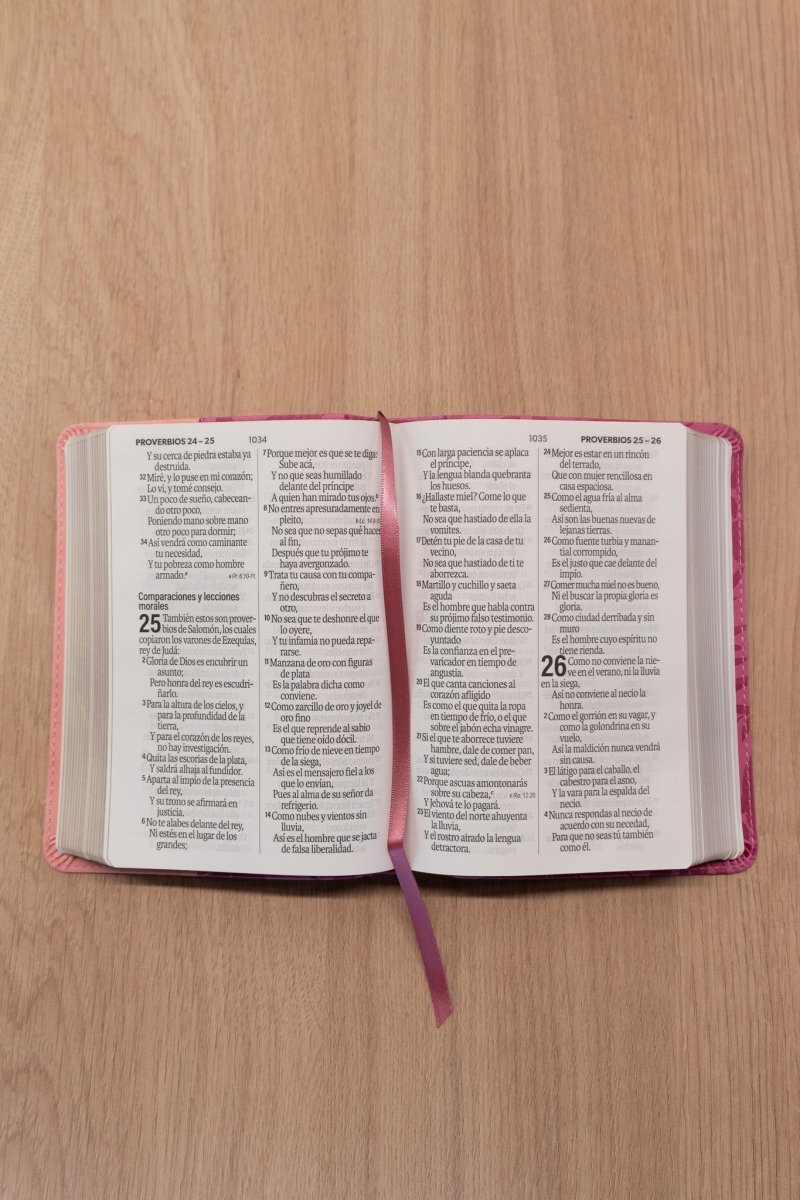 PROVERBIOS 24 – 25
1034
Y su cerca de piedra estaba ya
destruida.
32 Miré, y lo puse en mi corazón;
Lo vi, y tomé consejo.
33 Un poco de sueño, cabecean-
do otro poco,
Poniendo mano sobre mano
otro poco para dormir;
34 Así vendrá como caminante
tu necesidad,
Y tu pobreza como hombre
armado.a
a Pr. 6.10-11.
Comparaciones y lecciones
morales
25 También estos son prover-
bios de Salomón, los cuales
copiaron los varones de Ezequías,
rey de Judá:
2 Gloria de Dios es encubrir un
asunto;
Pero honra del rey es escudri-
ñarlo.
3 Para la altura de los cielos, y
para la profundidad de la
tierra,
Y para el corazón de los reyes,
no hay investigación.
4 Quita las escorias de la plata,
Y saldrá alhaja al fundidor.
5 Aparta al impío de la presencia
del rey,
Y su trono se afirmará en
justicia.
6 No te alabes delante del rey,
Ni estés en el lugar de los
grandes;
7 Porque mejor es que se te diga:
Sube acá,
Y no que seas humillado
delante del príncipe
A quien han mirado tus ojos.b
8 No entres apresuradamente en
pleito,
b Lc. 14.8-10
No sea que no sepas qué hacer
al fin,
Después que tu prójimo te
haya avergonzado.
9 Trata tu causa con tu compa-
ñero,
Y no descubras el secreto a
otro,
10 No sea que te deshonre el que
lo oyere,
Y tu infamia no pueda repa-
rarse.
11 Manzana de oro con figuras
de plata
Es la palabra dicha como
conviene.
12 Como zarcillo de oro y joyel de
oro fino
Es el que reprende al sabio
que tiene oído dócil.
13 Como frío de nieve en tiempo
de la siega,
Así es el mensajero fiel a los
que lo envían,
Pues al alma de su señor da
refrigerio.
14 Como nubes y vientos sin
lluvia,
Así es el hombre que se jacta
de falsa liberalidad.
1035
PROVERBIOS 25 – 26
15 Con larga paciencia se aplaca
el príncipe,
Y la lengua blanda quebranta
los huesos.
16 ¿Hallaste miel? Come lo que
te basta,
No sea que hastiado de ella la
vomites.
17 Detén tu pie de la casa de tu
vecino,
No sea que hastiado de ti te
aborrezca.
18 Martillo y cuchillo y saeta
aguda
Es el hombre que habla contra
su prójimo falso testimonio.
19 Como diente roto y pie desco-
yuntado
Es la confianza en el pre-
varicador en tiempo de
angustia.
20 El que canta canciones al
corazón afligido
Es como el que quita la ropa
en tiempo de frío, o el que
sobre el jabón echa vinagre.
21 Si el que te aborrece tuviere
hambre, dale de comer pan,
Y si tuviere sed, dale de beber
agua;
22 Porque ascuas amontonarás
sobre su cabeza,c
c Ro. 12.20.
Y Jehová te lo pagará.
23 El viento del norte ahuyenta
la lluvia,
Y el rostro airado la lengua
detractora.
24 Mejor es estar en un rincón
del terrado,
Que con mujer rencillosa en
casa espaciosa.
25 Como el agua fría al alma
sedienta,
Así son las buenas nuevas de
lejanas tierras.
26 Como fuente turbia y manan-
tial corrompido,
Es el justo que cae delante del
impío.
27 Comer mucha miel no es bueno,
Ni el buscar la propia gloria es
gloria.
28 Como ciudad derribada y sin
muro
Es el hombre cuyo espíritu no
tiene rienda.
26 Como no conviene la nie-
ve en el verano, ni la lluvia
en la siega,
Así no conviene al necio la
honra.
2 Como el gorrión en su vagar, y
como la golondrina en su
vuelo,
Así la maldición nunca vendrá
sin causa.
3 El látigo para el caballo, el
cabestro para el asno,
Y la vara para la espalda del
necio.
4 Nunca respondas al necio de
acuerdo con su necedad,
Para que no seas tú también
como él.